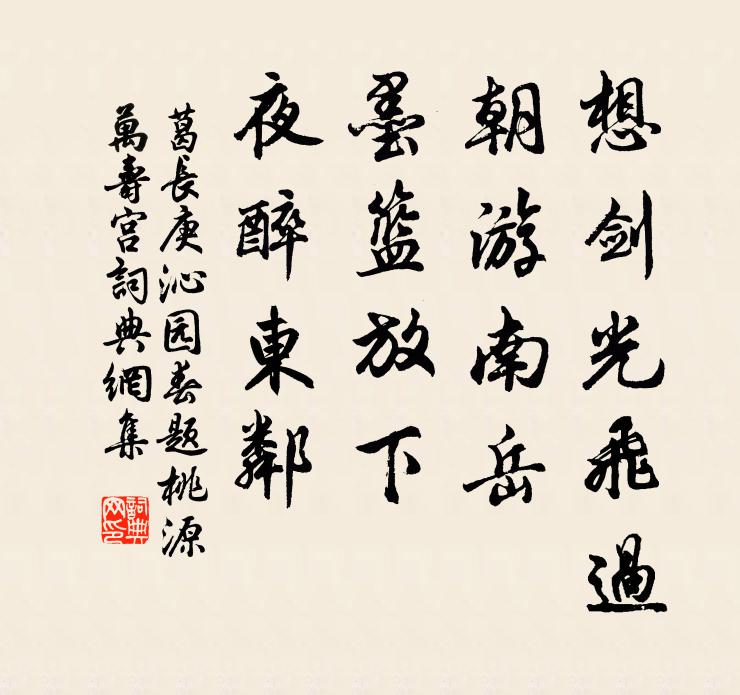 想剑光飛過
朝游南岳
墨籃放下
夜醉東鄰
葛長庚沁园春题桃源
萬壽宫詞典網集
詞典网印